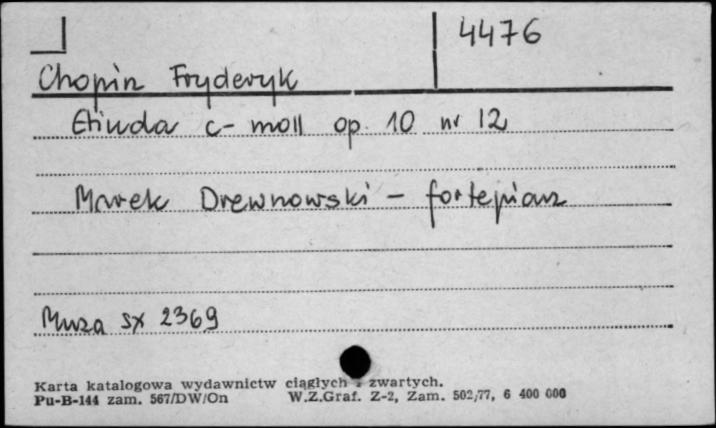 4476
Chopin Fryderyk
Etiuda c-moll op. 10 nr 12
Marek Drewnowski - fortepian
Muza SX 2369
Karta katalogowa wydawnictw ciągłych i zwartych.
Pu-B-144 zam. 567/DW/On W.Z.Graf. Z-2, Zam. 502/77, 6 400 000